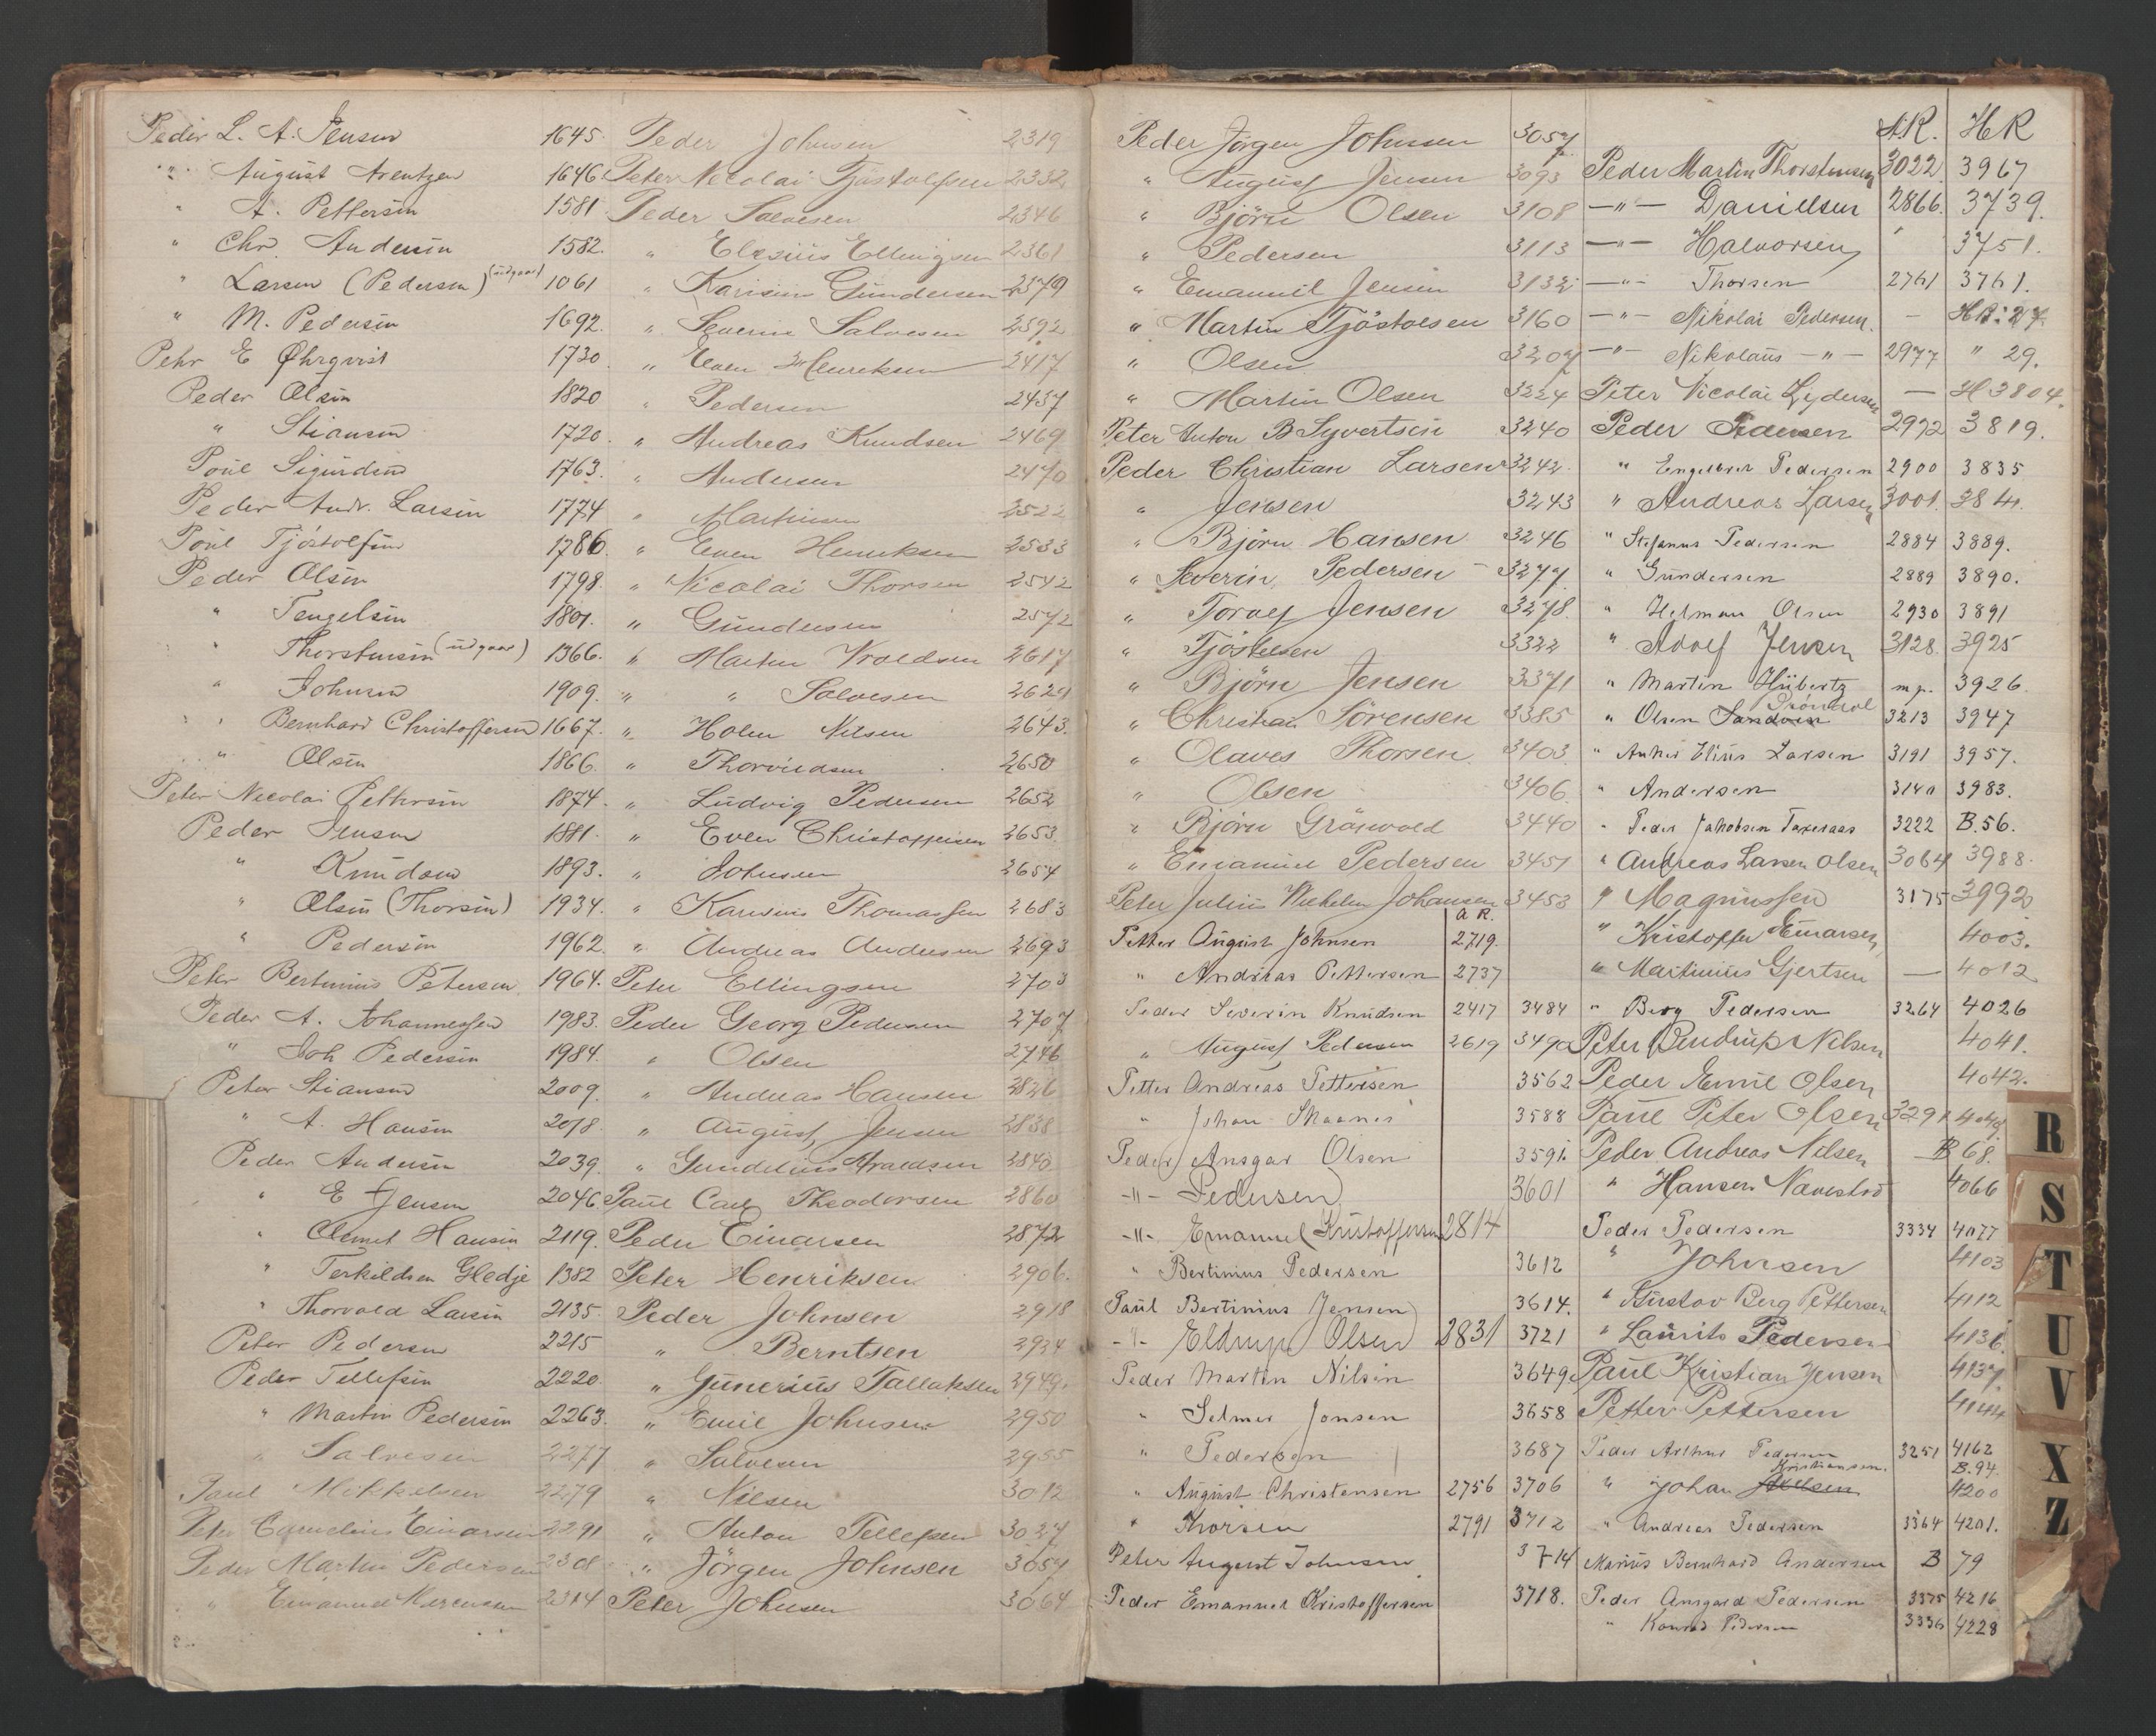 Peder L. A. Jensen 1645.
" August Arentzen 1646
" A. Pettersen 1581
" Chr. Andersen 1582.
" Larsen (Pedersen) (udgaar) 1061
" M. Pedersen 1692.
Pehr E Øhrqvist 1730.
Peder Olsen 1820
" Stiansen 1720.
Poul Sigurdsen 1763.
Peder Andr. Larsen 1774
Poul Tjöstolfsen 1786.
Peder Olsen 1798.
" Tengelsen 1801.
" Thorstensen (udgaar) 1366.
" Johnsen 1909.
" Bernhard Christoffersen 1667.
" Olsen 1866.
Peter Nicolai Pettersen 1874.
Peder Jensen 1881.
" Knudsen 1893.
" Olsen (Thorsen) 1934.
" Pedersen 1962.
Peter Bertinius Petersen 1964.
Peder A. Johannessen 1983.
" Joh Pedersen 1984.
Peter Stiansen 2009.
" A. Hansen 2018.
Peder Andersen 2039.
" E Jensen 2046
" Clemet Hansen 2119.
" Terkildsen Gledje 1382
" Thorvald Larsen 2135.
Peter Pedersen 2215
Peder Tellefsen 2220.
" Martin Pedersen 2263.
" Salvesen 2277
Paul Mikkelsen 2279
Peter Cornelius Einarsen 2291
Peder Martin Pedersen 2308
" Emanuel 2314
Peder Johnsen 2319
Peter Nicolai Tjöstolfsen 2332
Peder Salvesen 2346
" Elesius Ellingsen 2361
" Karinius Gundersen 2379
" Severin Salvesen 2392
" Even Henriksen 2417
" Pedersen 2437
" Andreas Knudsen 2469
" Andersen 2470
" Martinsen 2522
" Even Henriksen 2533
" Nicolai Thorsen 2542
" Gundersen 2572
" Martin Vroldsen 2617
" " Salvesen 2629
" Holm Nilsen 2643.
" Thorvildsen 2650
" Ludvig Pedersen 2652
" Even Christoffersen 2653.
" Johnsen 2654
" Karinius Thomassen 2683
" Andreas Andersen 2693
Peter Ellingsen 2703
Peder Georg Pedersen 2707
" Olsen 2746
" Andreas Hansen 2826
" August Jensen 2838
" Gundelius Araldsen 2840
Paul Carl Theodorsen 2860
Peder Einarsen 2872
Peter Henriksen 2906.
Peder Johnsen 2918
" Berntsen 2934
" Gunerius Tallaksen 2949.
" Emil Johnsen 2950
" Salvesen 2955
" Nilsen 3012
" Anton Tellefsen 3027
" Jörgen Johnsen 3057
Peter Johnsen 3064
Peder Jörgen Johnsen 3057
" August Jensen 3093
" Björn Olsen 3108
" Pedersen 3113
" Emanuel Jensen 3132
" Martin Tjöstolsen 3160
" Olsen 3207
" Martin Olsen 3224
Peter Anton B Syvertsen 3240
Peder Christian Larsen 3242.
" Jensen 3243
" Björn Hansen 3246
" Severin Pedersen - 3277
" Toralf Jensen 3278.
" Tjöstelsen 3322
" Björn Jensen 3371
" Christian Sörensen 3385
" Olaves Thorsen 3403
" Olsen 3406.
" Björn Gråsvold 3440
" Emanuel Pedersen 3451
Peter Julius Vilhelm Johansen 3453
A R.
Petter August Johnsen 2719.
" Andreas Pettersen 2737
Peder Severin Knudsen 2417 3484
" August Pedersen 2619 3490
Petter Andreas Pettersen 3562
" Johan Skaanes 3588
Peder Ansgar Olsen 3591.
-"- Pedersen 3601
-"- Emanuel Kristoffersen 2814
" Bertinius Pedersen 3612
Paul Bertinius Jensen 3614.
-"- Eldrup Olsen 2831 3721
Peder Martin Nilsen 3649.
" Selmer Jonsen 3658
" Pedersen 3687
" August Christensen 2756 3706
" Thorsen 2791 3712
Peter August Johnsen 3714
Peder Emanuel Kristoffersen 3718.
A.R. HR
Peder Martin Thorstensen 3022 3967
-"- Daniellsen 2866. 3739.
-"- Halvorsen ' 3751.
-"- Thorsen 2761 3761.
-"- Nikolai Pedersen. -
-"- Nikolaus -"- 2977 " 29.
Peter Nicolai Lydersen — H 3804.
Peder Pedersen 2972 3819.
" Engelbret Pedersen 2900 3835
" Andreas Larsen 3001.
" Stefanus Pedersen 2884 3889.
" Gundersen 2889 3890.
" Helman Olsen 2930 3891
" Adolf Jensen 3128. 3925
" Martin Hübertz m p. 3926.
" Olsen Sandven 3213 3947
" Anker Elius Larsen 3191 3957.
" Andersen 3140 3983.
" Peder Jakobsen Taxeraas 3222 B. 56.
" Andreas Larsen Olsen 3064 3988.
" Magnussen 3175 3992
" Kristoffer Einarsen 4003.
" Martinius Gjertsen — 4012
" Berg Pedersen 3264 4026
Peter Bendrup Nilsen 4041.
Peder Emil Olsen 4042.
Paul Peter Olsen 3291
Peder Andreas Nilsen B 68.
" Hansen Navestad 4066
Peder Pedersen 3334 4077
" Johnsen 4103
" Gustav Berg Pettersen 4112
" Laurits Pedersen 4136.
Paul Kristian Jensen 4137
Petter Pettersen 4144
Peder Arthur Pedersen 3251 4162
Kristiansen. B. 94.
" Johan Axelsen 4200
" Andreas Pedersen 3364 4201.
Marius Bernhard Andersen B 79
Peder Ansgard Pedersen 3375 4216
" Konrad Pedersen 3336 4228
R
S
T
U
V
X
Z